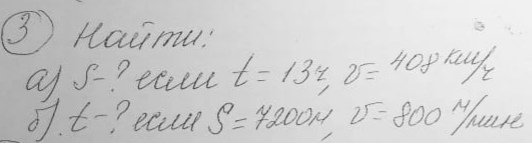 ③ Найти:
а) S-? если t = 13ч, v = 408 км/ч
б) t-? если S = 7200м, v = 800 м/мин